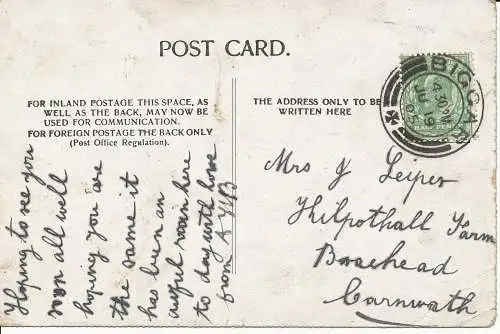 POST CARD.
FOR INLAND POSTAGE THIS SPACE, AS
WELL AS THE BACK, MAY NOW BE
USED FOR COMMUNICATION.
FOR FOREIGN POSTAGE THE BACK ONLY
(Post Office Regulation).
THE ADDRESS ONLY TO BE
WRITTEN HERE
BIGGAR
4 30 PM
19
05
HALF PENNY
Hoping to see you
soon all well
hoping you are
the same it
has been an
awful here
to day with love
from
Mrs J Leiper
Whilpothall Farm
Braehead
Carnwath